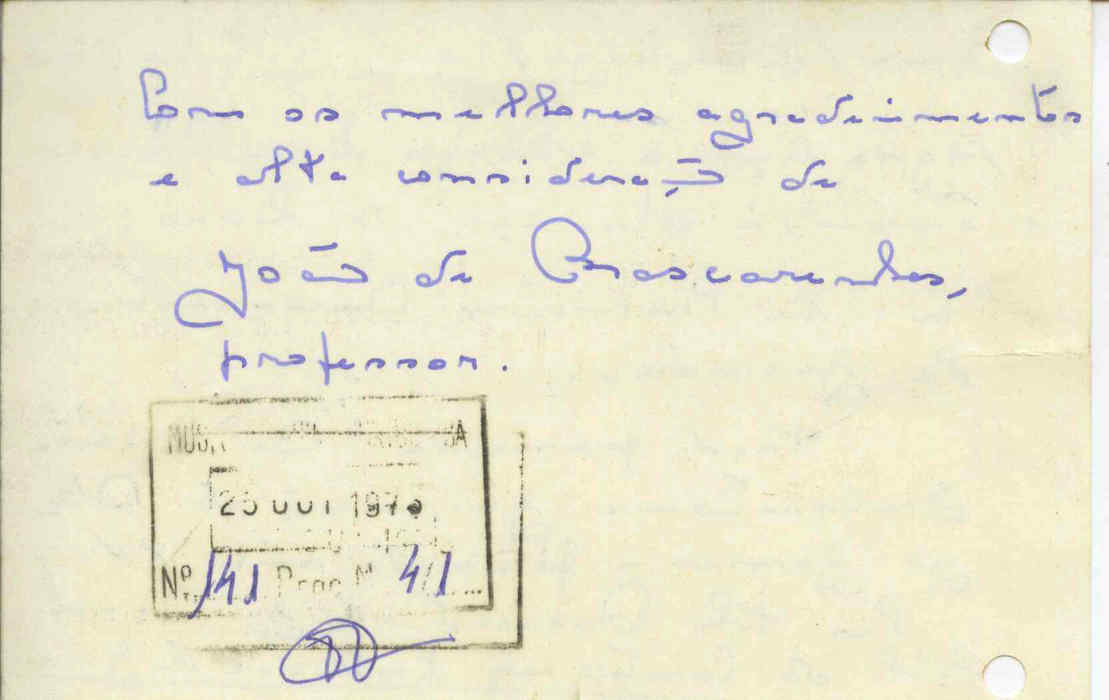 Com os melhores agradecimentos
e alta consideração de
João de Mascarenhas,
professor.
MUS
25 OUT 197
Nº 141 Proc Nº 4/1